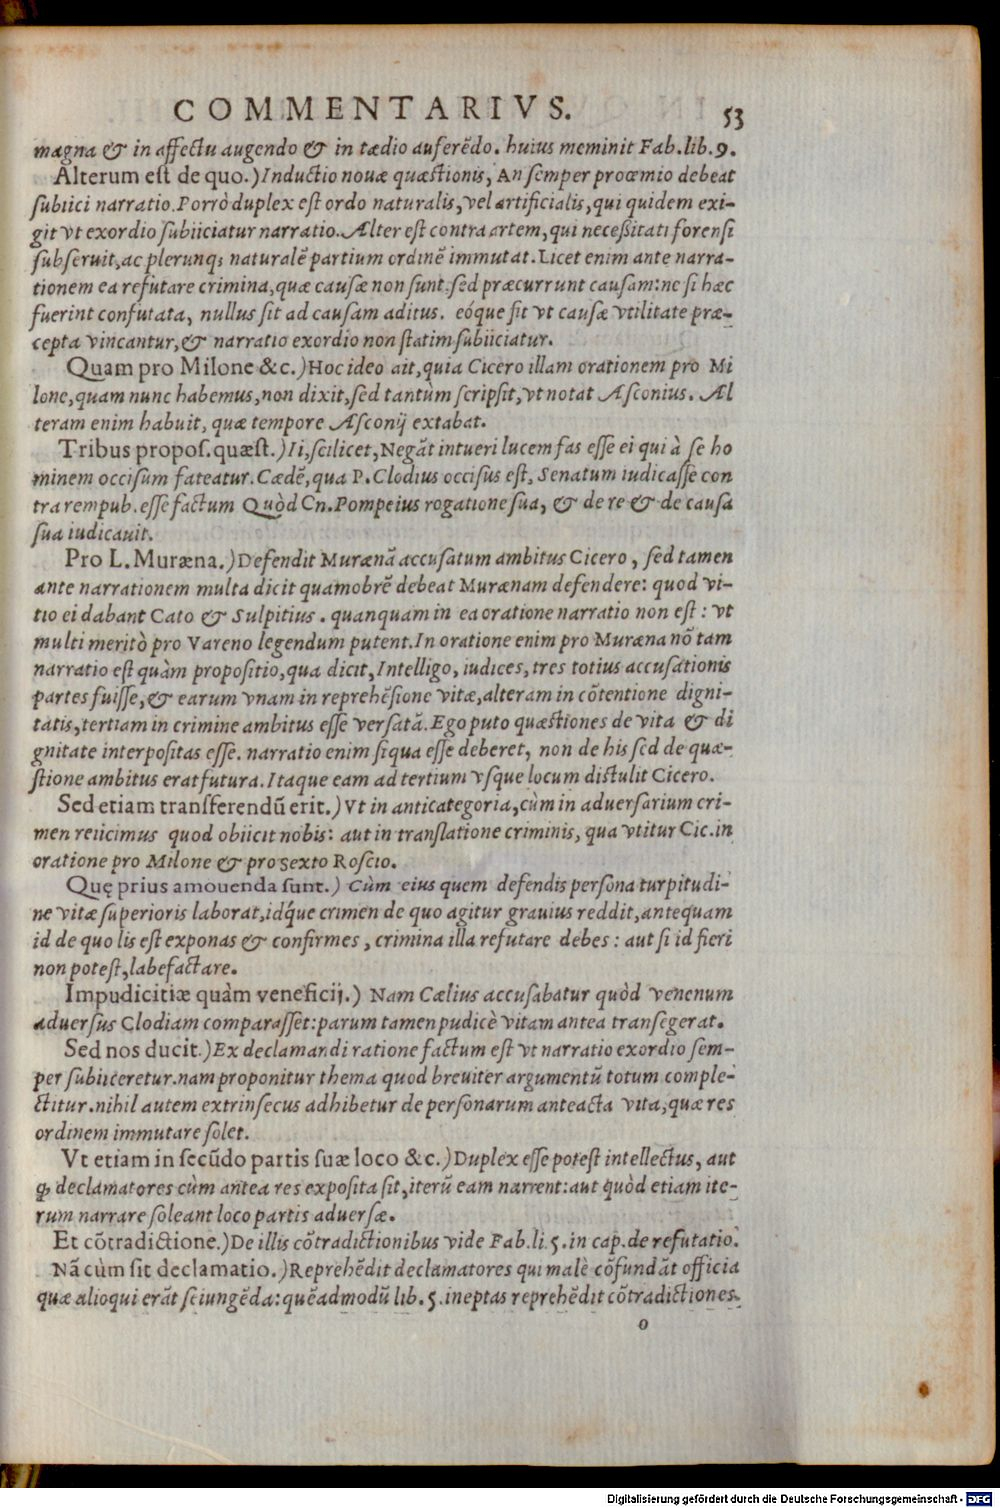 COMMENTARIVS. 53
magna & in affectu augendo & in tædio auferẽdo. huius meminit Fab. lib. 9.
Alterum est de quo.) Inductio nouæ quæstionis, An semper proœmio debeat
subiici narratio. Porrò duplex est ordo naturalis, vel artificialis, qui quidem exi-
git vt exordio subiiciatur narratio. Alter est contra artem, qui necessitati forensi
subseruit, ac plerunq; naturalẽ partium ordinẽ immutat. Licet enim ante narra-
tionem ea refutare crimina, quæ causæ non sunt, sed præcurrunt causam: ne si hæc
fuerint confutata, nullus sit ad causam aditus. eóque fit vt causæ vtilitate præ-
cepta vincantur, & narratio exordio non statim subiiciatur.
Quam pro Milone &c.) Hoc ideo ait, quia Cicero illam orationem pro Mi
lone, quam nunc habemus, non dixit, sed tantùm scripsit, vt notat Asconius. Al
teram enim habuit, quæ tempore Asconij extabat.
Tribus propos. quæst.) Ii, scilicet, Negãt intueri lucem fas esse ei qui à se ho
minem occisum fateatur. Cædẽ, qua P. Clodius occisus est, Senatum iudicasse con
tra rempub. esse factum Quòd Cn. Pompeius rogatione sua, & de re & de causa
sua iudicauit.
Pro L. Muræna.) Defendit Murænã accusatum ambitus Cicero, sed tamen
ante narrationem multa dicit quamobrẽ debeat Murænam defendere: quod vi-
tio ei dabant Cato & Sulpitius. quanquam in ea oratione narratio non est: vt
multi meritò pro Vareno legendum putent. In oratione enim pro Muræna nõ tam
narratio est quàm propositio, qua dicit, Intelligo, iudices, tres totius accusationis
partes fuisse, & earum vnam in reprehẽsione vitæ, alteram in cõtentione digni-
tatis, tertiam in crimine ambitus esse versatã. Ego puto quæstiones de vita & di
gnitate interpositas esse. narratio enim siqua esse deberet, non de his sed de quæ-
stione ambitus erat futura. Itaque eam ad tertium vsque locum distulit Cicero.
Sed etiam transferendũ erit.) Vt in anticategoria, cùm in aduersarium cri-
men reiicimus quod obiicit nobis: aut in translatione criminis, qua vtitur Cic. in
oratione pro Milone & pro sexto Roscio.
Quę prius amouenda sunt.) Cùm eius quem defendis persona turpitudi-
ne vitæ superioris laborat, idq́ue crimen de quo agitur grauius reddit, antequam
id de quo lis est exponas & confirmes, crimina illa refutare debes: aut si id fieri
non potest, labefactare.
Impudicitiæ quàm veneficij.) Nam Cælius accusabatur quòd venenum
aduersus Clodiam comparasset: parum tamen pudicè vitam antea transegerat.
Sed nos ducit.) Ex declamandi ratione factum est vt narratio exordio sem-
per subiiceretur. nam proponitur thema quod breuiter argumentũ totum comple-
ctitur. nihil autem extrinsecus adhibetur de personarum anteacta vita, quæ res
ordinem immutare solet.
Vt etiam in secũdo partis suæ loco &c.) Duplex esse potest intellectus, aut
ꝙ declamatores cùm antea res exposita sit, iterũ eam narrent: aut quòd etiam ite-
rum narrare soleant loco partis aduersæ.
Et cõtradictione.) De illis cõtradictionibus vide Fab. li. 5. in cap. de refutatio.
Nã cùm sit declamatio.) Reprehẽdit declamatores qui malè cõfundãt officia
quæ alioqui erãt seiungẽda: quẽadmodũ lib. 5. ineptas reprehẽdit cõtradictiones.
o
Digitalisierung gefördert durch die Deutsche Forschungsgemeinschaft - DFG